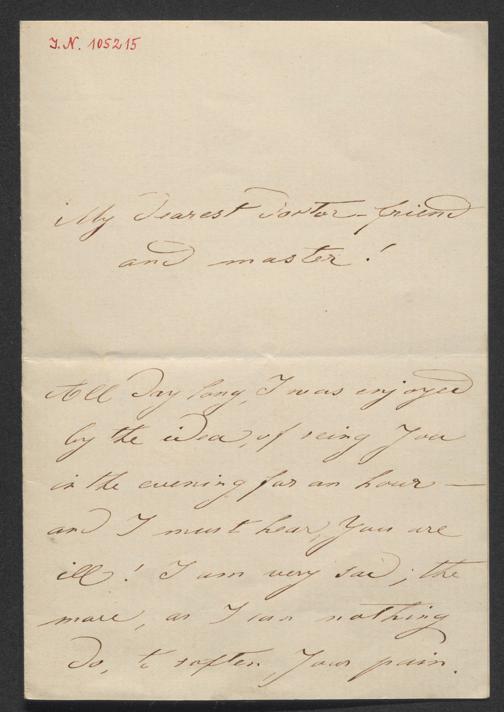 I.N. 105215
My dearest Doctor-friend
and master!
All Day long, I was enjoyed
by the idea, of seing You
in the evening for an hour —
and I must hear, You are
ill! I am very sad; the
more, as I can nothing
do, to soften, Your pain.